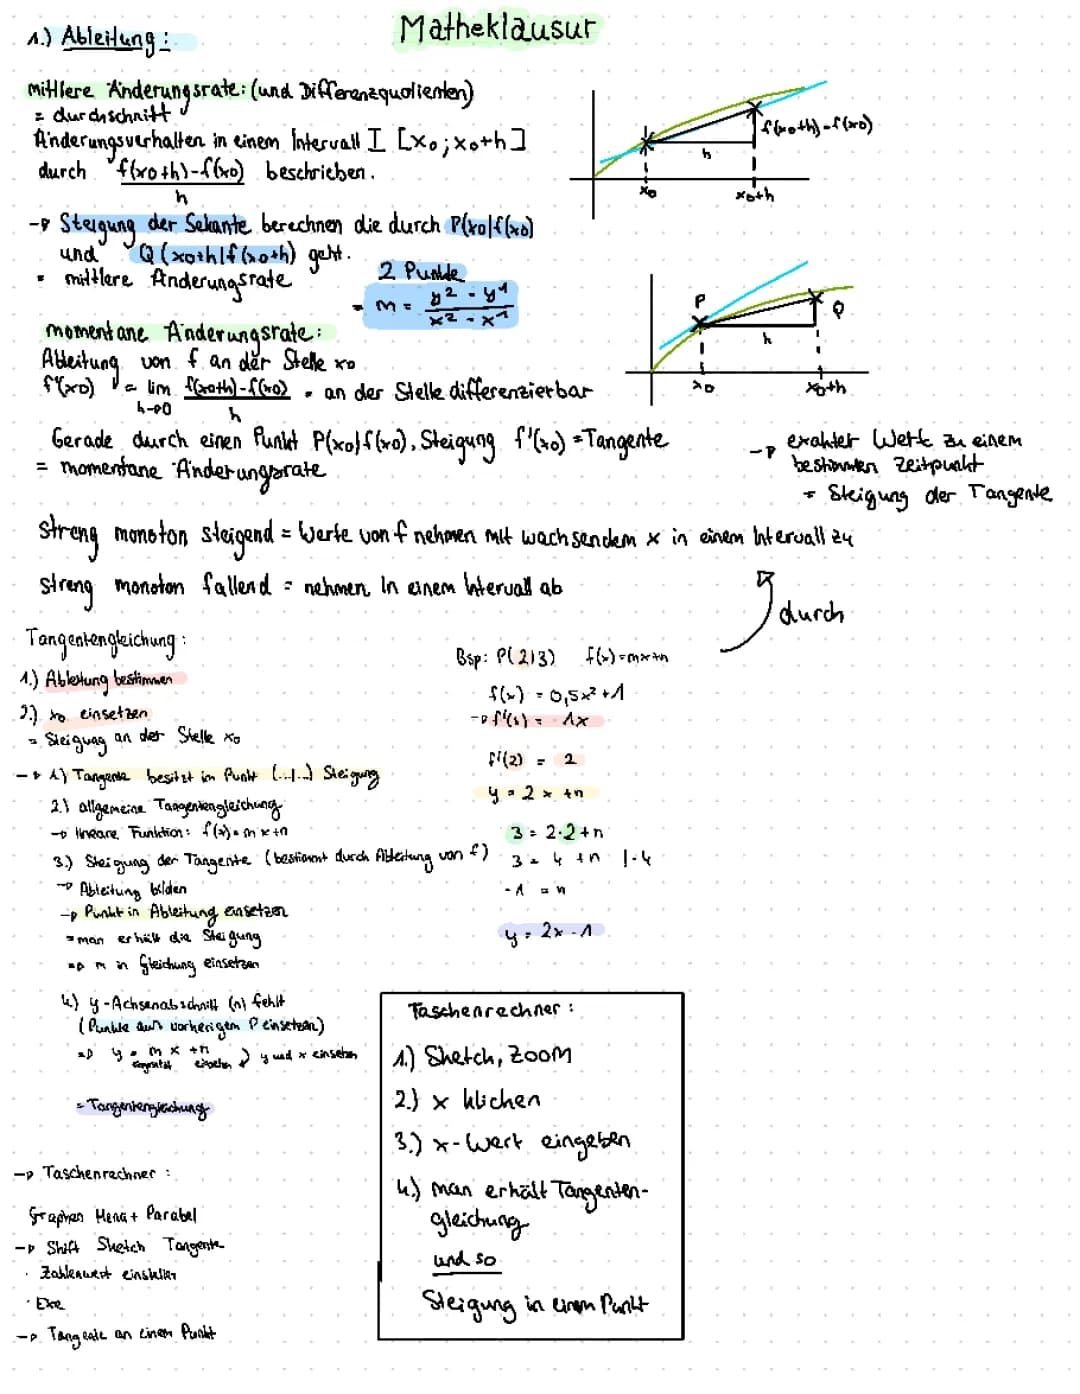 Matheklausur
1.) Ableitung:
mittlere Änderungsrate: (und Differenzquotienten)
= durchschnitt
Änderungsverhalten in einem Intervall I [x0; x0+h]
durch f(x0+h)-f(x0) beschrieben.
h
f(x0+h)-f(x0)
h
x0
x0+h
→ Steigung der Sekante berechnen die durch P(x0|f(x0)
und Q(x0+h|f(x0+h) geht.
= mittlere Änderungsrate
2 Punkte
= m = y2 - y1
x2 - x1
P
Q
h
x0
x0+h
momentane Änderungsrate:
Ableitung von f an der Stelle x0
f'(x0) = lim f(x0+h)-f(x0) = an der Stelle differenzierbar
h→0 h
Gerade durch einen Punkt P(x0|f(x0), Steigung f'(x0) = Tangente
= momentane Änderungsrate
→ exakter Wert zu einem
bestimmten Zeitpunkt
= Steigung der Tangente
streng monoton steigend = Werte von f nehmen mit wachsendem x in einem Intervall zu
streng monoton fallend = nehmen in einem Intervall ab
durch
Tangentengleichung:
1.) Ableitung bestimmen
2.) x0 einsetzen
= Steigung an der Stelle x0
→ 1.) Tangente besitzt im Punkt (...|...) Steigung
2.) allgemeine Tangentengleichung
→ lineare Funktion: f(x)=mx+n
3.) Steigung der Tangente (bestimmt durch Ableitung von f)
→ Ableitung bilden
→ Punkt in Ableitung einsetzen
= man erhält die Steigung
⇒ m in Gleichung einsetzen
4.) y-Achsenabschnitt (n) fehlt
(Punkte aus vorherigem P einsetzen)
⇒ y = mx +n
y und x einsetzen
= Tangentengleichung
Bsp: P(2|3) f(x)=mx+n
f(x) = 0,5x²+1
→ f'(x) = 1x
f'(2) = 2
y = 2x +n
3 = 2·2+n
3 = 4 +n |-4
-1 = n
y = 2x-1
→ Taschenrechner:
Graphen Menü + Parabel
→ Shift Sketch Tangente
· Zahlenwert einstellen
· Exe
→ Tangente an einem Punkt
Taschenrechner:
1.) Sketch, ZOOM
2.) x klicken
3.) x-Wert eingeben
4.) man erhält Tangenten-
gleichung
und so
Steigung in einem Punkt